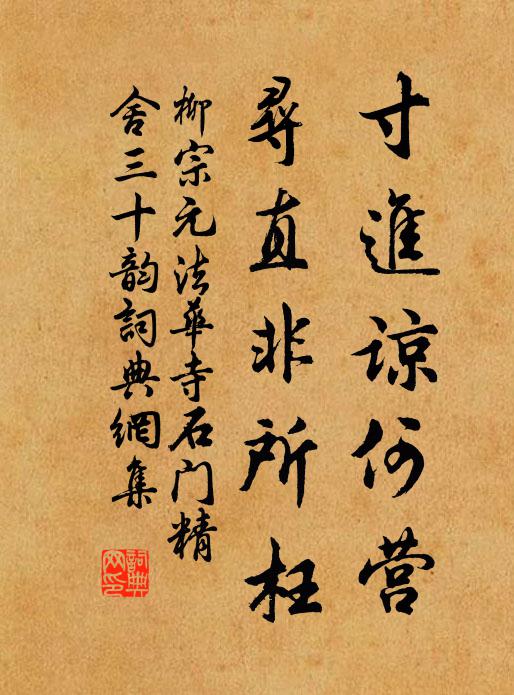 寸進諒何營
尋直非所枉
柳宗元法華寺石门精
舍三十韵詞典網集
詞典
网印